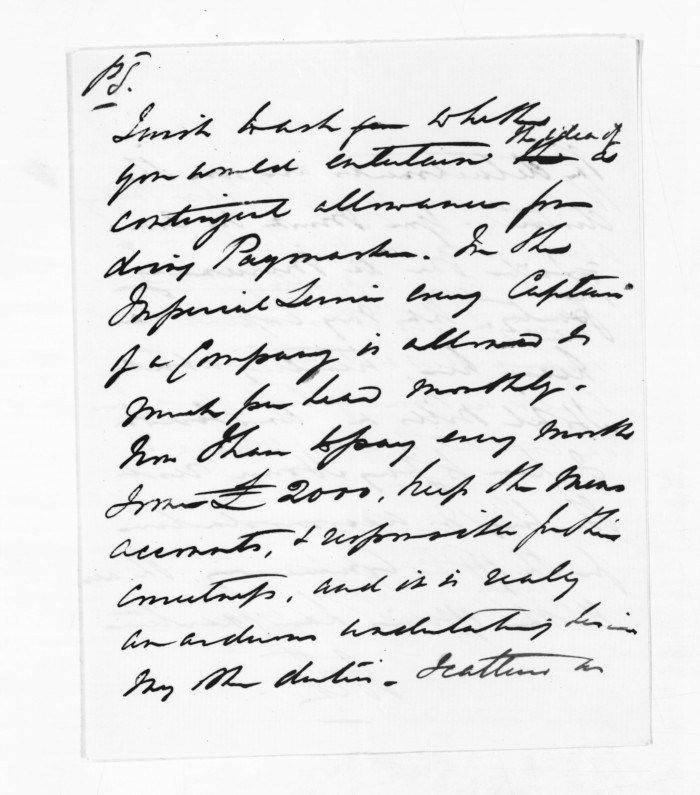 PS.
I wish to ask you whether
you would entertain the idea of a
contingent allowance for
doing Paymaster. In the
Imperial Service every Captain
of a Company is allowed so
much per head monthly.
Now I have to pay every month
some £2000, keep the mens
accounts, & responsible for their
correctness, and it is realy
an arduous undertaking besides
my other duties - Scattered as